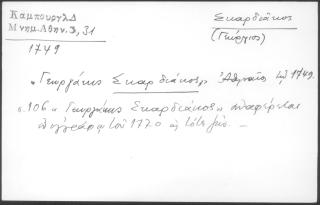 Καμπούργλ Δ
Μνημ. Αθην. 3, 31
1749
Σκαρδιάκος
(Γεώργιος)
« Γεωργάκης Σκαρδιάκος » Αθηναίος 1749.
σ. 106 « Γεωργάκης Σκαρδιάκος » αναφέρεται
του 1770 ως τότε ζων. —